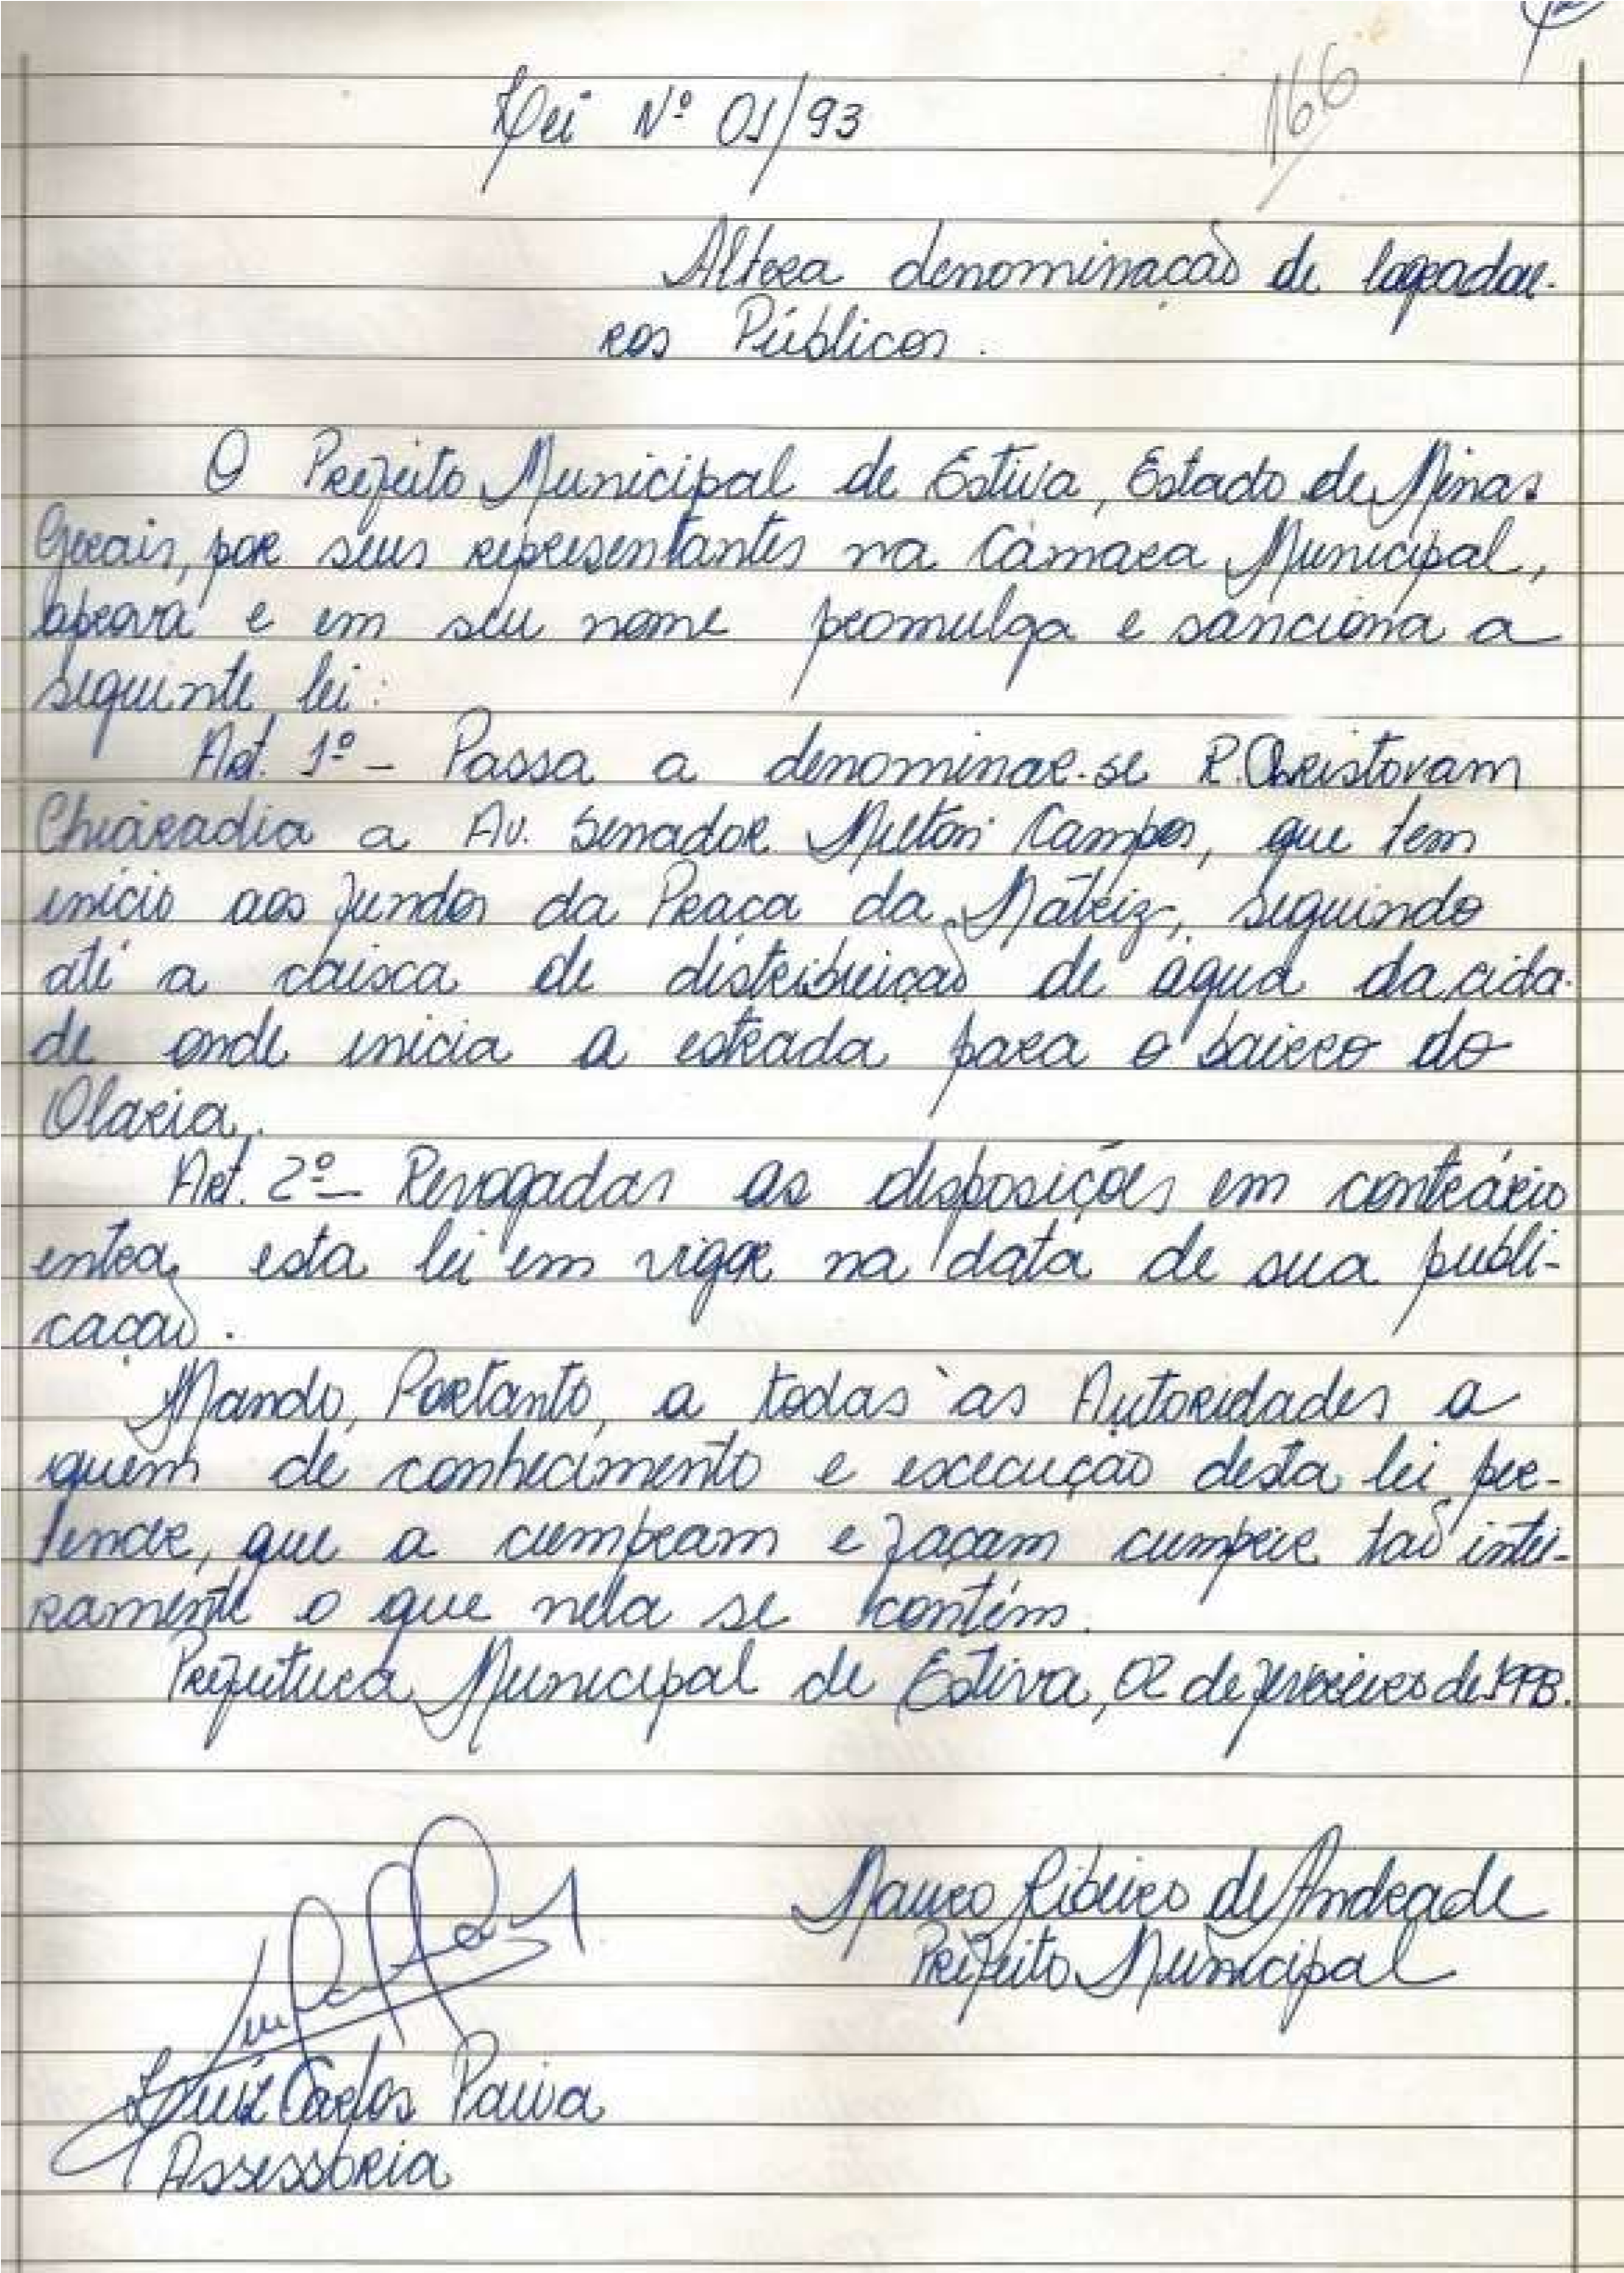 Lei Nº 01/93
166
Altera denominação de logradou-
ros Públicos.
O Prefeito Municipal de Estiva, Estado de Minas
Gerais, por seus representantes na Câmara Municipal,
aprova e em seu nome promulga e sanciona a
seguinte lei:
Art. 1º - Passa a denominar-se R. Christovam
Chiaradia a Av. Senador Milton Campos, que tem
início aos fundos da Praça da Matriz, seguindo
até a caixa de distribuição de água da cida-
de onde inicia a estrada para o bairro do
Olaria.
Art. 2º - Revogadas as disposições em contrário
entra esta lei em vigor na data de sua publi-
cação.
Mando, Portanto, a todas as Autoridades a
quem de conhecimento e execução desta lei per-
tencer, que a cumpram e façam cumprir tão intei-
ramente o que nela se contém.
Prefeitura Municipal de Estiva, 02 de fevereiro de 1993.
Mauro Ribeiro de Andrade
Prefeito Municipal
Luiz Carlos Paiva
Assessoria